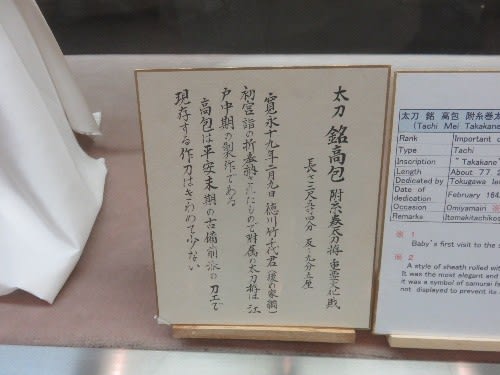 太刀 銘高包 附糸巻太刀拵 重要文化財
長さ二尺五寸四分 反り九分五厘
寛永十九年二月九日 徳川竹千代君(後の家綱)
初宮詣の折奉納されたもので附属の太刀拵は江
戸中期の製作である
高包は平安末期の古備前派の刀工で
現存する作刀はきわめて少ない
太刀 銘 高包 附糸巻太
(Tachi Mei Takakane
Rank Important c
Type Tachi
Inscription " Takakane
Length About 77.2
Dedicated by Tokugawa Ie
Date of dedication February 164
Occasion Omiyamairi ※
Remarks Itomakitachikos
※ 1
Baby's first visit to the s
※ 2
A style of sheath rolled wit
It was the most elegant and
it was a symbol of samurai fa
not displayed to prevent its